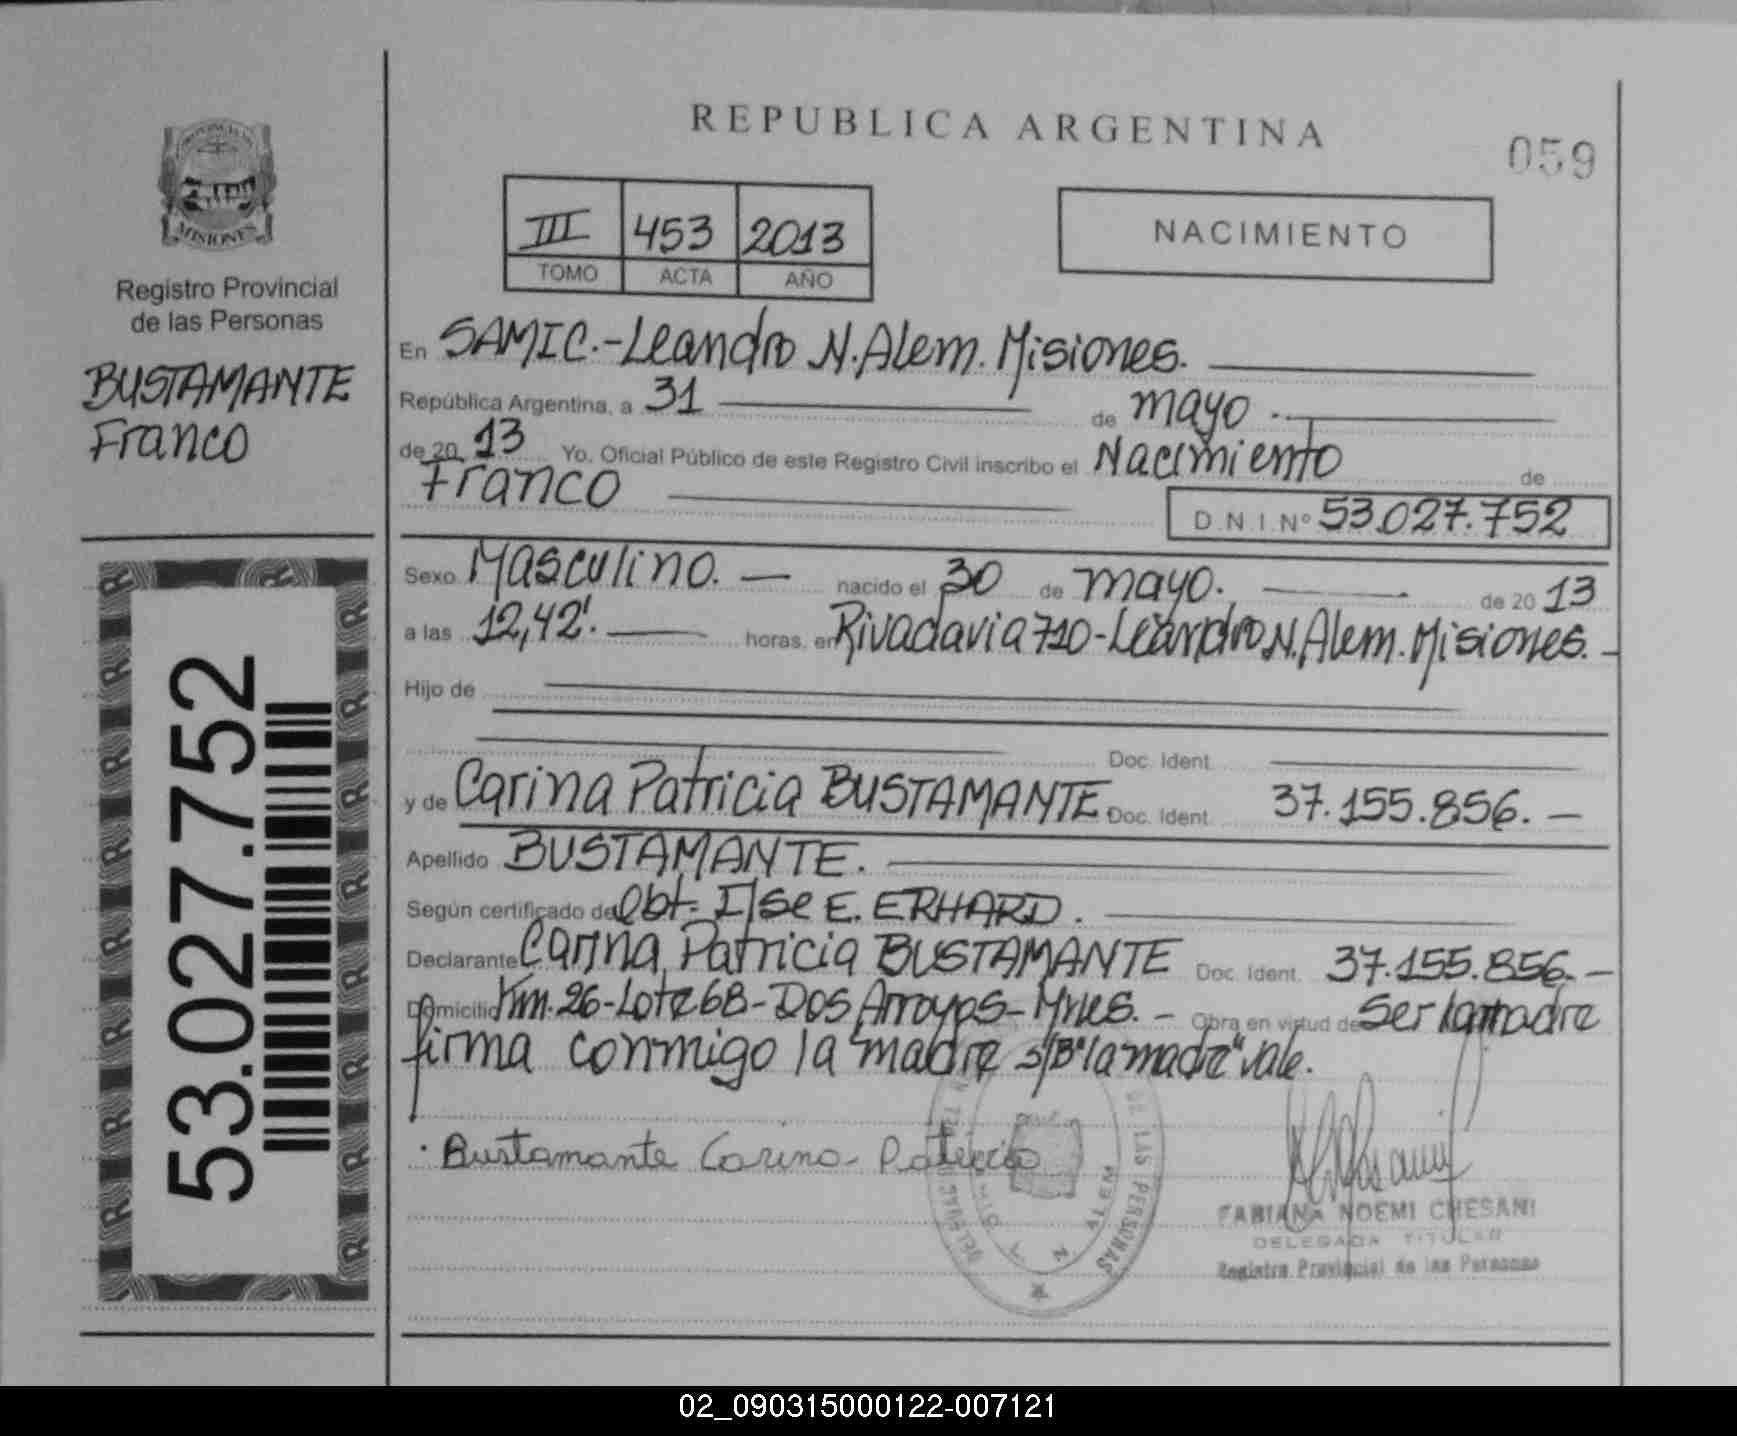 REPUBLICA ARGENTINA
059
PROVINCIA DE
MISIONES
Registro Provincial
de las Personas
BUSTAMANTE
Franco
53.027.752
III 453 2013
TOMO ACTA AÑO
NACIMIENTO
En SAMIC.-Leandro N. Alem. Misiones.
República Argentina, a 31 de mayo.
de 20 13 Yo. Oficial Público de este Registro Civil inscribo el Nacimiento de
Franco D.N.I.Nº 53.027.752
Sexo Masculino. nacido el 30 de mayo. de 20 13
a las 12,42'. horas, en Rivadavia 710-Leandro N. Alem. Misiones.-
Hijo de
Doc. Ident.
y de Carina Patricia BUSTAMANTE Doc. Ident. 37.155.856.-
Apellido BUSTAMANTE.
Según certificado de Obt. Ilse E. ERHARD.
Declarante Carina Patricia BUSTAMANTE Doc. Ident. 37.155.856.-
Domicilio Km. 26-Lote 68-Dos Arroyos-Mnes.- Obra en virtud de ser la madre
firma conmigo la madre s/B "la madre" vale.
Bustamante Carina Patricia
DE LAS PERSONAS
L. N. ALEM
FABIANA NOEMI CHESANI
DELEGADA TITULAR
Registro Provincial de las Personas
02_090315000122-007121